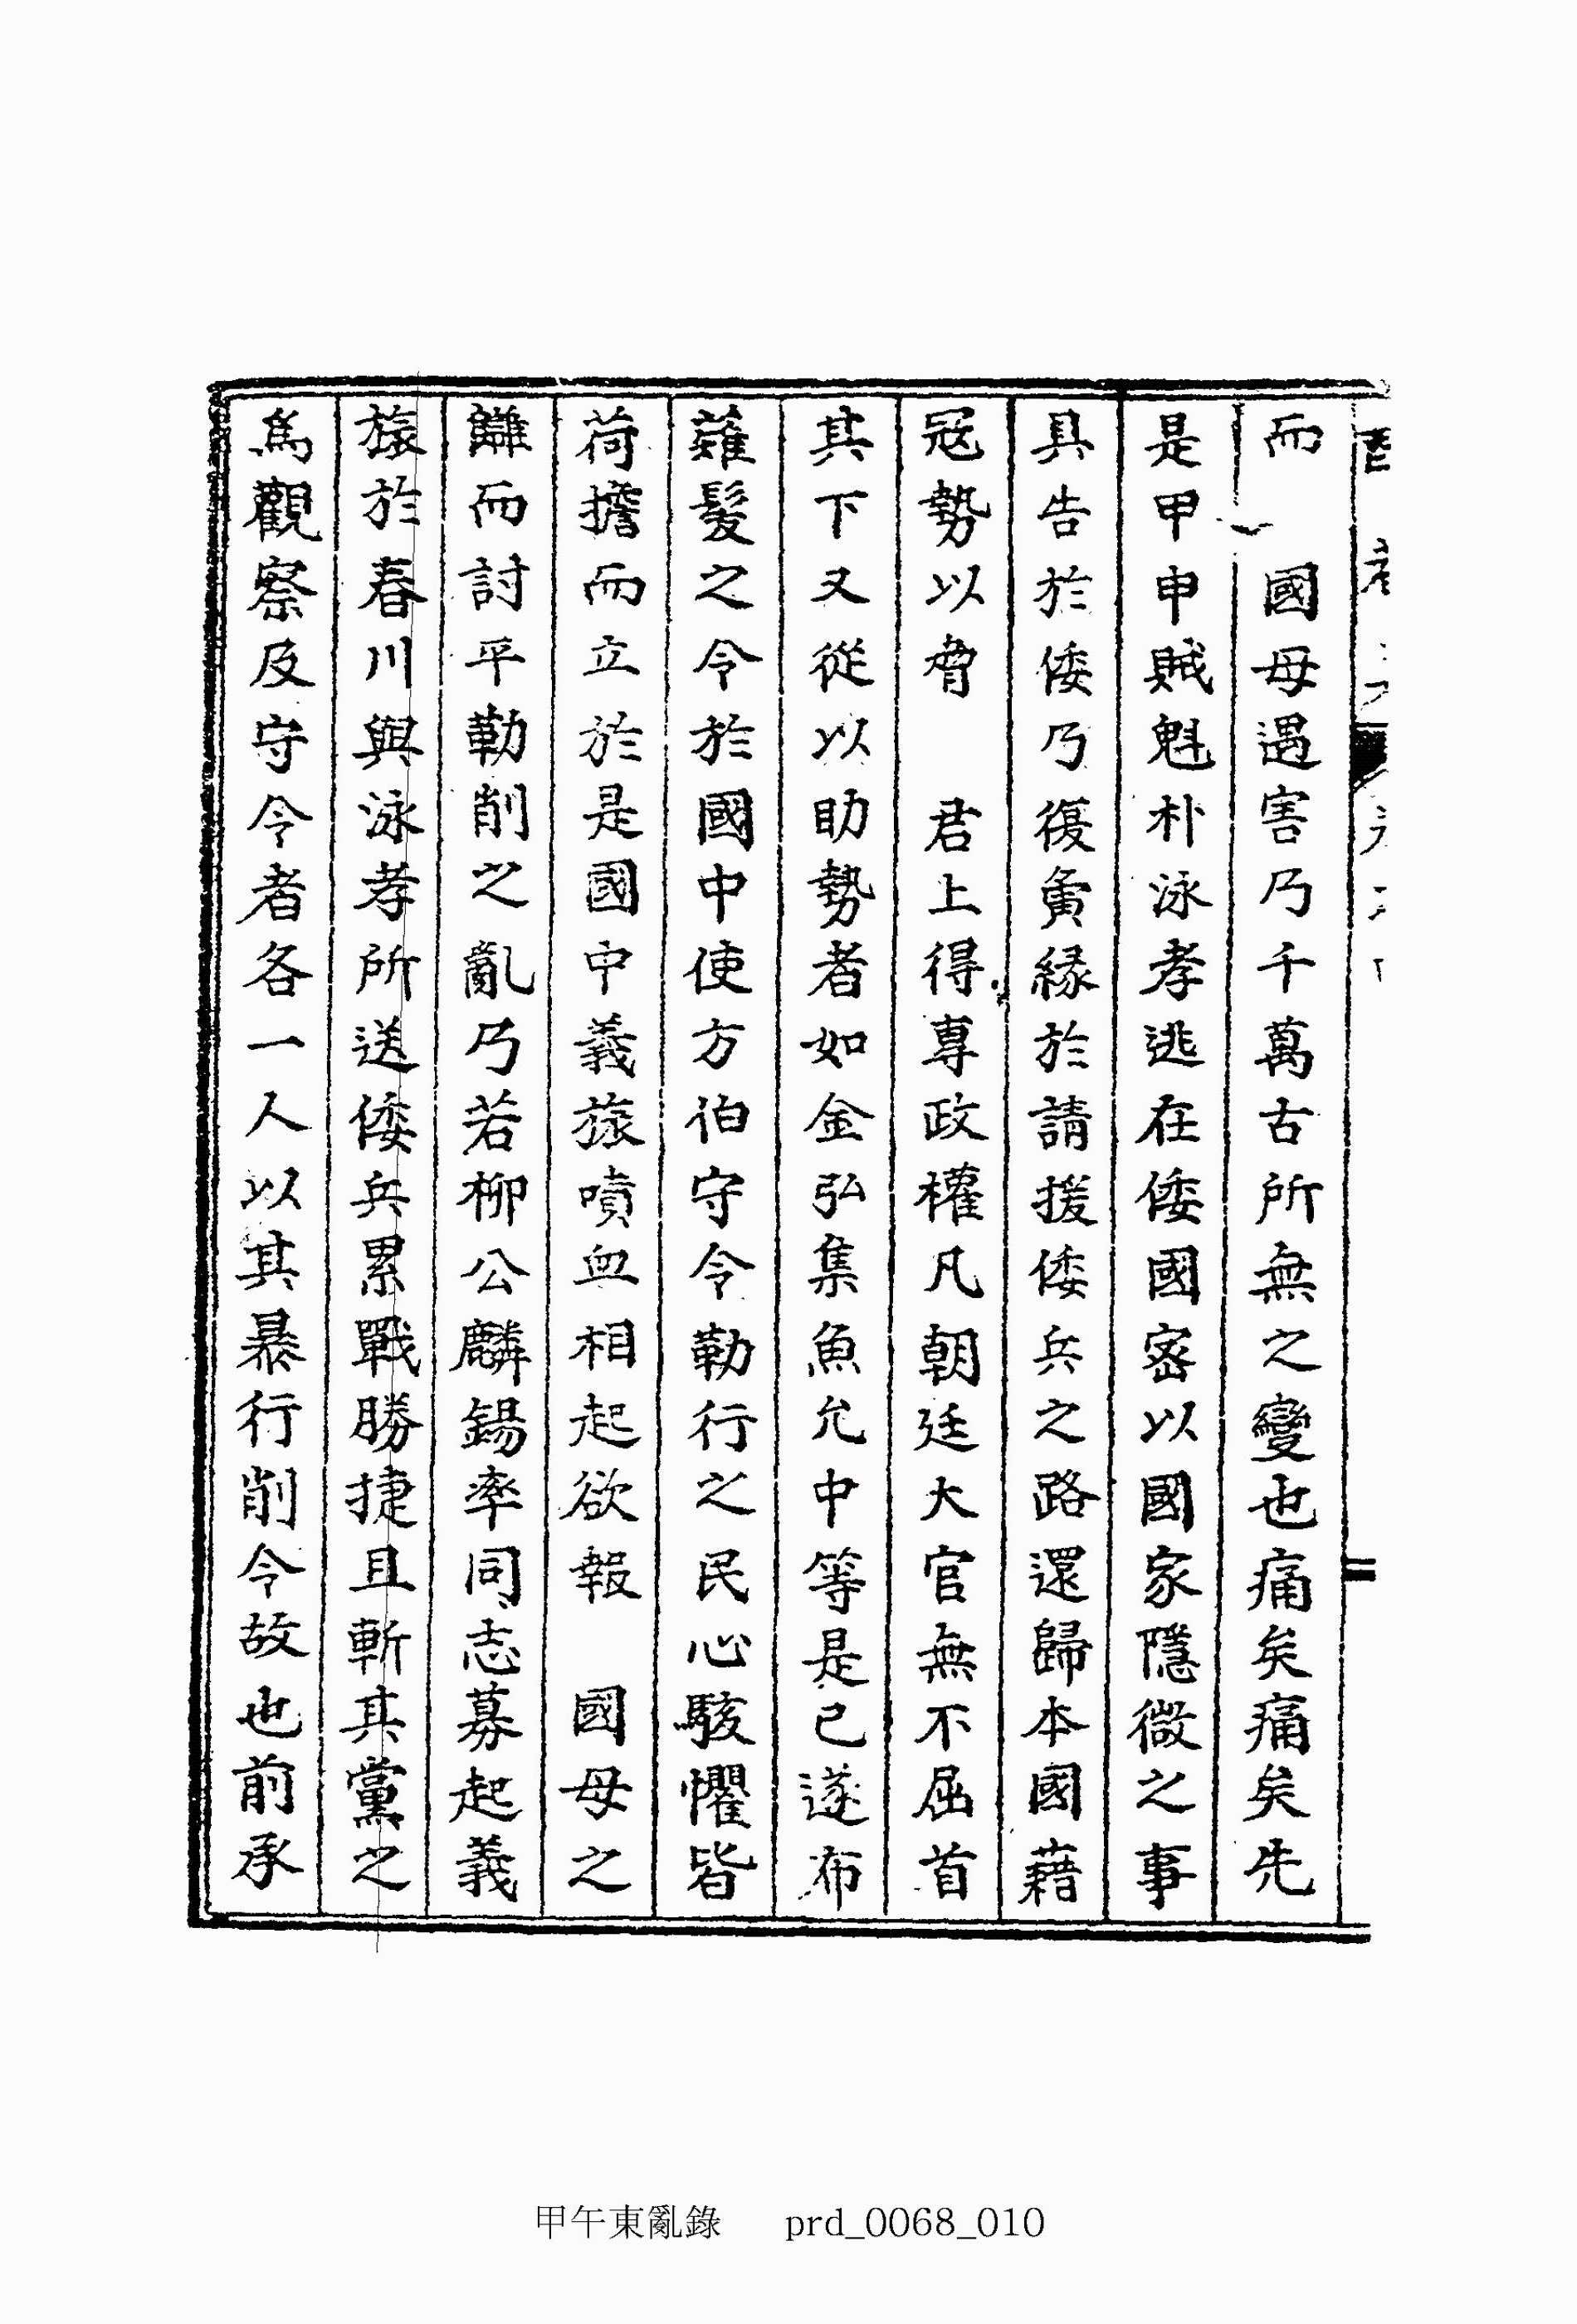 而 國母遇害乃千萬古所無之變也痛矣痛矣先
是甲申賊魁朴泳孝逃在倭國密以國家隱微之事
具告於倭乃復夤緣於請援倭兵之路還歸本國藉
冠勢以脅 君上得專政權凡朝廷大官無不屈首
其下又從以助勢者如金弘集魚允中等是已遂布
薙髮之令於國中使方伯守令勒行之民心駭懼皆
荷擔而立於是國中義旅噴血相起欲報 國母之
讎而討平勒削之亂乃若柳公麟錫率同志募起義
旅於春川與泳孝所送倭兵累戰勝捷且斬其黨之
爲觀察及守令者各一人以其暴行削令故也前承
二
甲午東亂錄 prd_0068_010